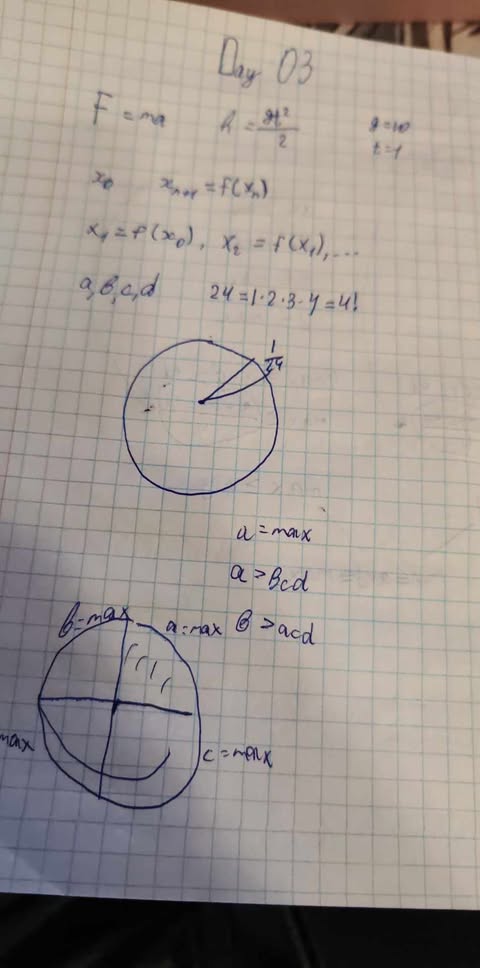 Day 03
F = ma h = gt²/2 g=10
t=1
x₀ xₙ₊₁ = f(xₙ)
x₁ = f(x₀), x₂ = f(x₁), ...
a, b, c, d 24 = 1·2·3·4 = 4!
1/24
a = max
a > bcd
b = max a = max b > acd
max c = max